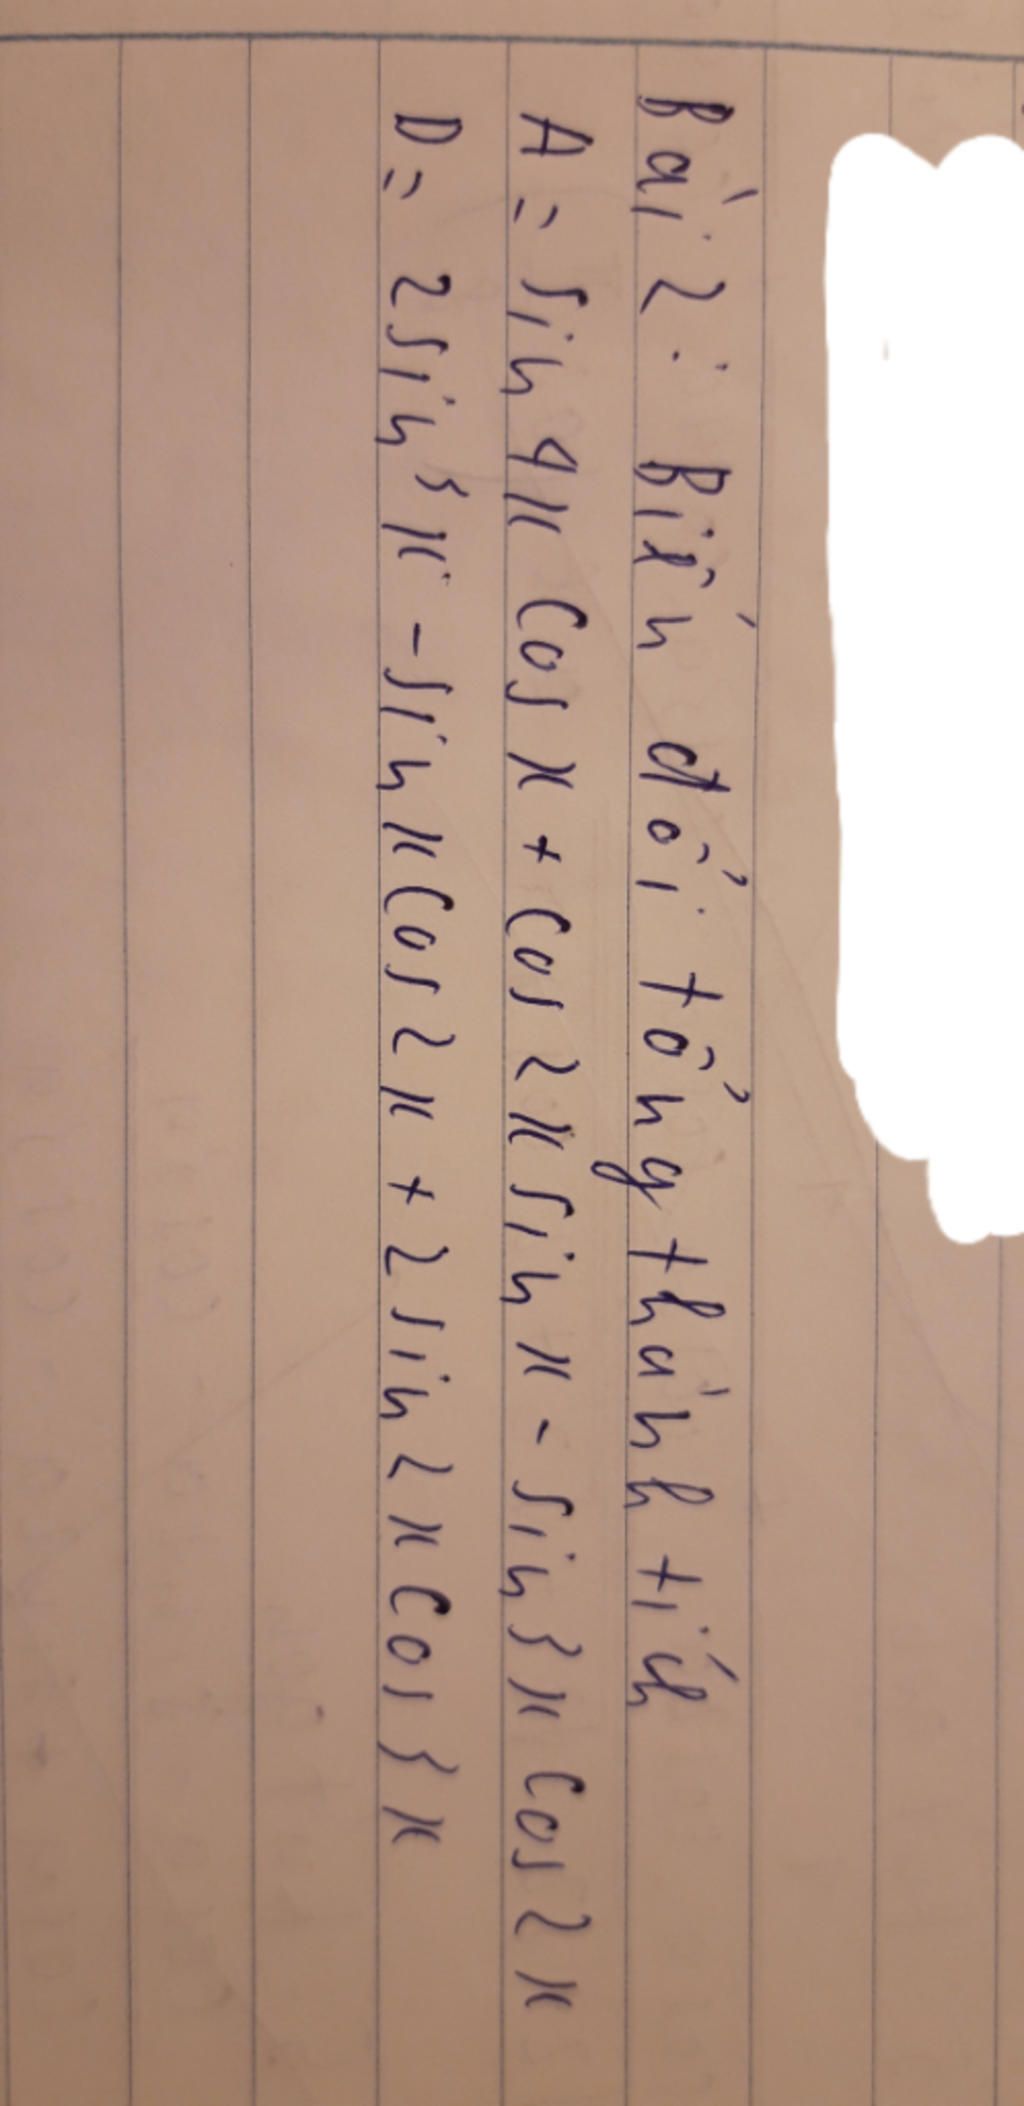 Bài 2: Biến đổi tổng thành tích
A = sin 4x cos x + cos 2x sin x - sin 3x cos 2x
D = 2 sin³x - sin x cos 2x + 2 sin 2x cos 3x